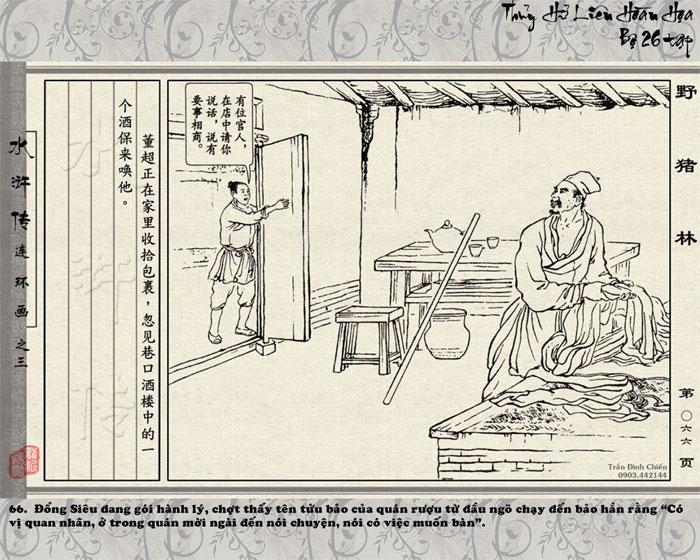 Thủy Hử Liên Hoàn Họa
Bộ 26 tập
野猪林
有位官人，
在店中请你
说话，说有
要事相商。
董超正在家里收拾包裹，忽见巷口酒楼中的一
个酒保来唤他。
水浒传连环画之三
水浒传
第〇六六页
Trần Đình Chiến
0903.442144
66. Đổng Siêu đang gói hành lý, chợt thấy tên tửu bảo của quán rượu từ đầu ngõ chạy đến bảo hắn rằng “Có
vị quan nhân, ở trong quán mời ngài đến nói chuyện, nói có việc muốn bàn”.